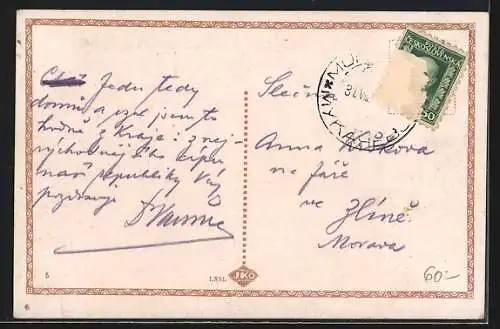 Jedu tedy
domů a vzal jsem to
hodně z kraje: z nej-
východnějšího cípu
naší republiky Vás
pozdravuje
Slečna
Anna
na faře
ve Zlíně
Morava
ČESKOSLOVENSKÁ
50
MUKAČEVO
5
L.N31.
JKO
60-
6